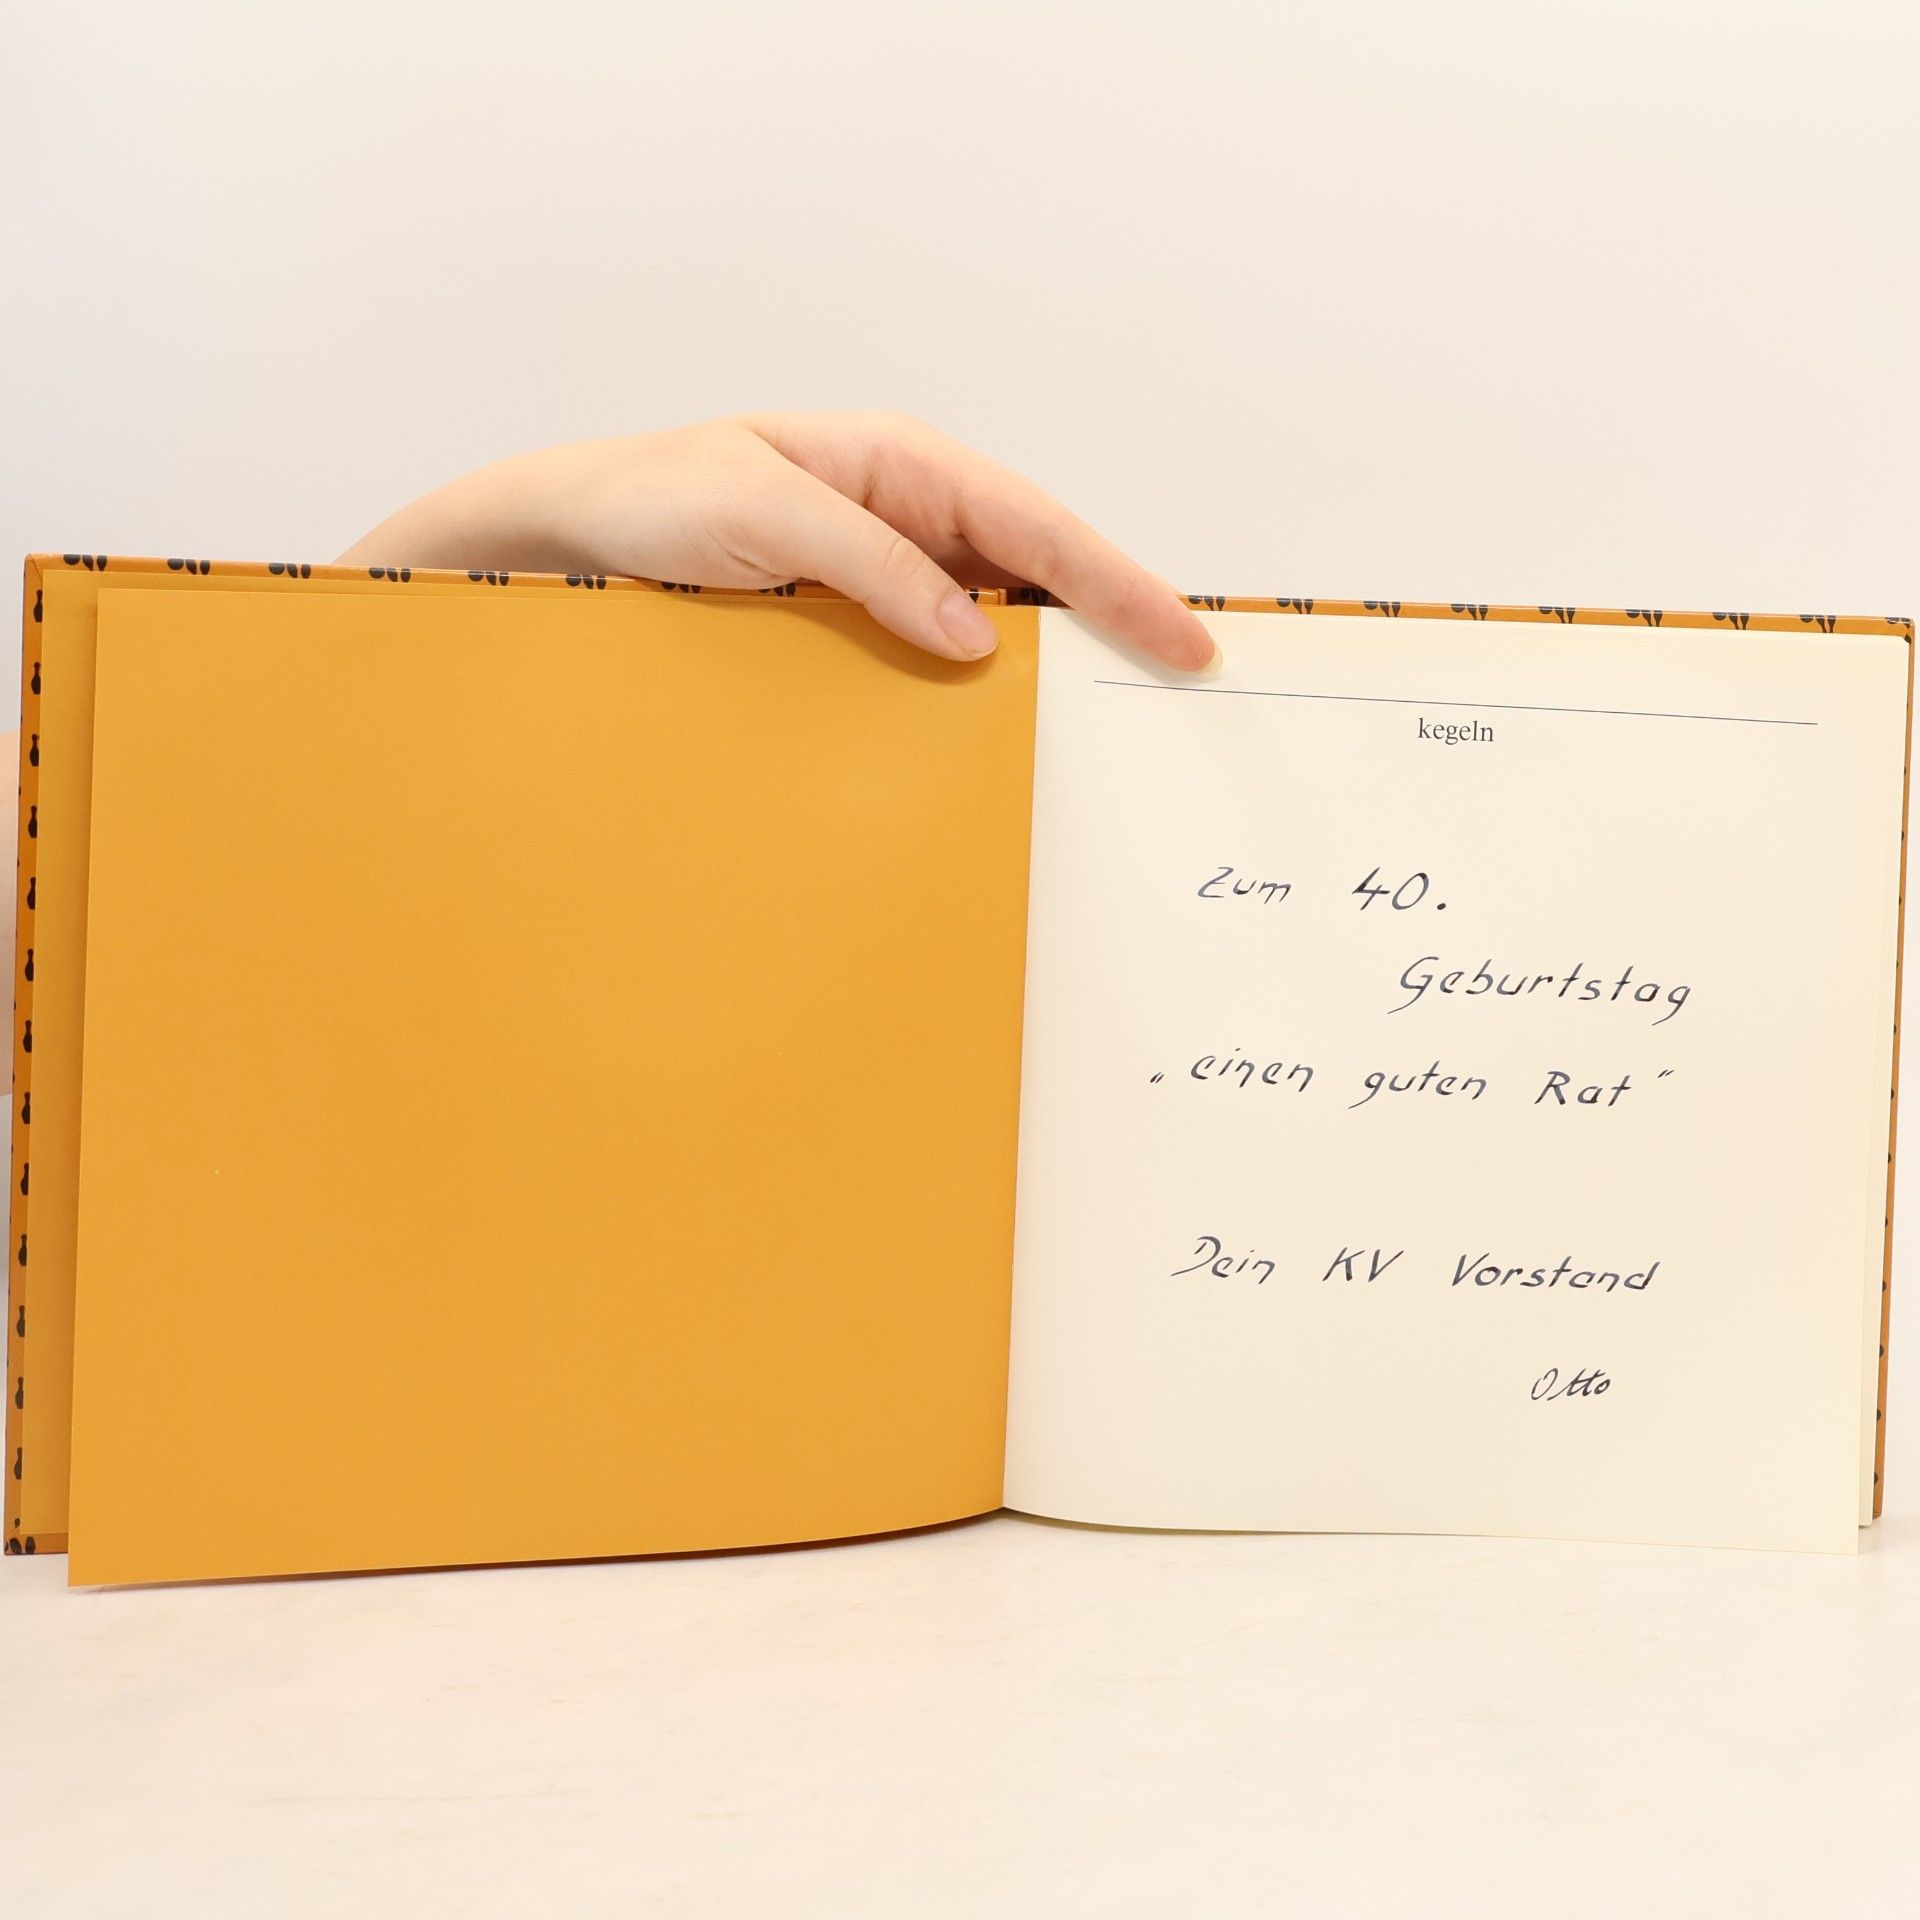 kegeln
Zum 40.
Geburtstag
„einen guten Rat"
Dein KV Vorstand
Otto